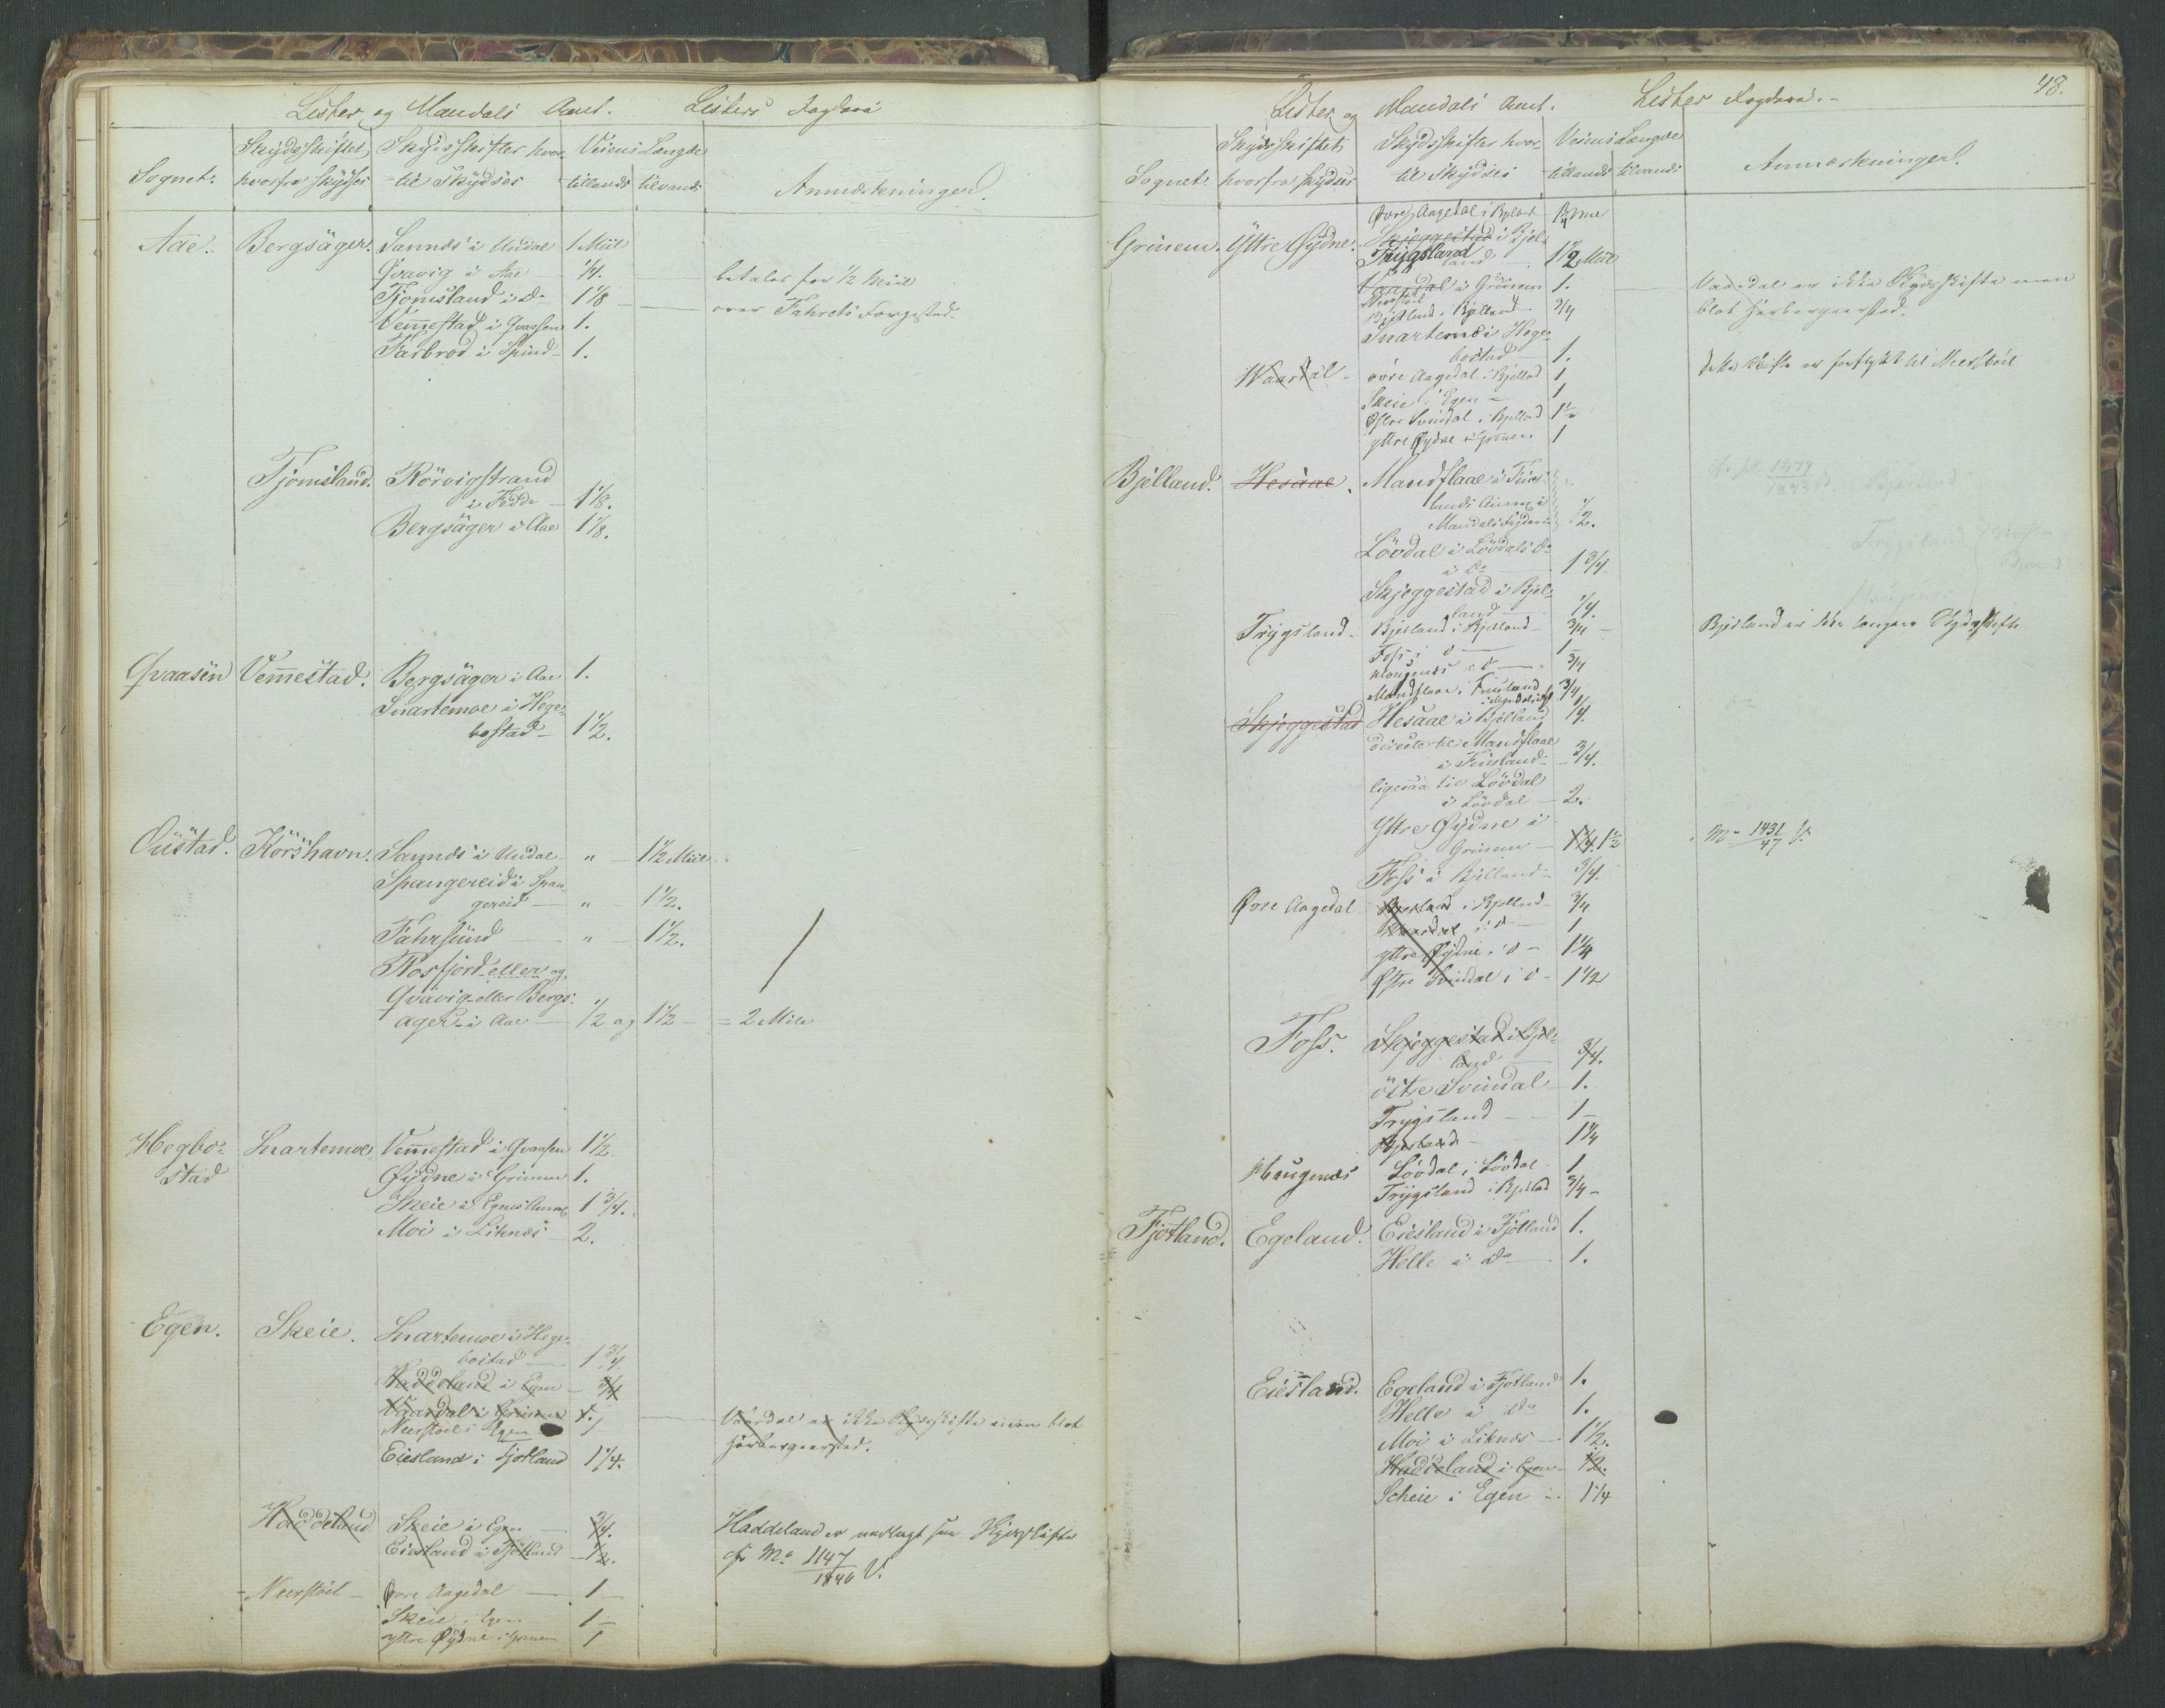 Lister og Mandals Amt. Listers Fogderi
Sognet. Skydsskiftet hvorfra skydses Skydsskifter hvortil Skydses Veiens Længde tillands tilvands Anmærkninger.
Aae. Bergsäger. Sannæs i Undal 1 Miil
Qvavig i Aae 1/4. betales for 1/2 Miil
Tjomsland i do 1 1/8 over Fahrets Torgestad.
Vemestad i Qvaasen 1.
Farbrod i Spind 1.
Tjomsland. Rörvigstrand
i Fedde 1 1/8.
Bergsäger i Aae 1 1/8.
Qvaasen Vemestad. Bergsäger i Aae 1.
Snartemoe i Hege-
bostad 1 1/2.
Oüstad. Körshavn. Sannæs i Undal " 1 1/2 Miil
Spangereid i Span-
gereid " 1 1/2.
Fahrsund " 1 1/2.
Rosfjord eller og
Qvavig eller Bergs-
ager i Aae 1/2 og 1 1/2 = 2 Mile
Hegbo-
stad Snartemoe Vemestad i Qvaasen 1 1/2
Øydne i Grinem 1.
Skeie i Egens Annex 1 3/4.
Moi i Liknæs 2.
Egen. Skeie. Snartemoe i Hege-
bostad 1 3/4
Haddeland i Egen 3/4
Vaardal i Grinem 1. Vaardal er ikke Skydsskifte men blot
Neerstöel i Egen 1 Herbergeersted.
Eiesland i Fjotland 1 1/4.
Haddeland Skeie i Egen 3/4. Haddeland er nedlagt som Skydsskifte
Eiesland i Fjotland 1/2. cfr No 1147/1846 V.
Neerstöel Øvre Aagedal 1
Skeie i Egen 1
yttre Øydne i Grinem 1
48.
Lister og Mandals Amt. Lister Fogderi.
Sognet. Skydsskiftet hvorfra skydses Skydsskifter hvortil Skydses Veiens Længde tillands tilvands Anmærkninger.
Grinem. Yttre Øydne. Øvre Aagedal i Bjelland
Skjeggestad i Bjel-
Trygsland land 1 1/2 Miil
Vaardal i Grinem 1. Vaardal er ikke Skydsskifte men
Neerstöel blot Herbergeersted.
Bjesland i Bjelland 3/4
Snartemo i Hege-
bostad 1.
Vaardal öore Aagedal i Bjelland 1 dette Skifte er forflyttet til Neerstöel
Skeie i Egen 1
Østre Svindal i Bjelland 1 1/2
yttre Øydne i Grinem 1
Bjelland. Hesaae. Mandflaae i Fins-
lands Annex i
Mandals Fogderie 1/2.
Lövdal i Lövdals do
i do 1 3/4
Skjeggestad i Bjel-
land 1/4.
Trygsland. Bjesland i Bjelland 3/4 Bjesland er ikke længere Skydsskifte
Foss i d 1
Haugenæs i d 3/4
Mandflaae i Finsland 3/4
Skjeggestad Hesaae i Bjelland 1/4.
directe til Mandflaae
i Finsland 3/4.
ligesaa til Lövdal
i Lövdal 2.
Yttre Øydne i
Grinem 1 1/4. 1 1/2 No 1431/47 V.
Foss i Bjelland 3/4.
Øvre Aagedal Bjesland i Bjelland 3/4
Vaardal i d 1
yttre Øydne i d 1 1/4
Østre Svindal i d 1 1/2
Foss. Skjeggestad i Bjel-
land 3/4.
östre Svindal 1.
Trygsland 1
Bjesland 1 1/4
Haugenæs Lövdal i Lövdal 1
Trygsland i Bjelland 3/4
Fjotland. Egeland. Eiesland i Fjotland 1.
Helle i do 1.
Eiesland. Egeland i Fjotland 1.
Helle i do 1.
Moi i Liknæs 1 1/2.
Haddeland i Egen 1/2.
Scheie i Egen 1 1/4